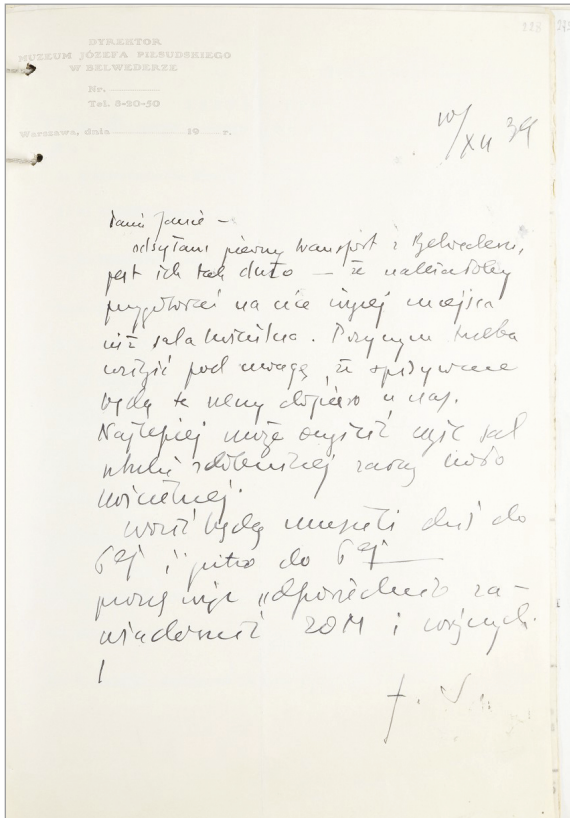 228
DYREKTOR
MUZEUM JÓZEFA PIŁSUDSKIEGO
W BELWEDERZE
Nr.
Tel. 8-20-50
Warszawa, dnia 19 r.
10/XII 39
Panie Janie –
odsyłam pierwszy transport z Belwederu,
jest ich tak dużo – że należałoby
przygotować na nie więcej miejsca
niż sala kościelna. Poczym trzeba
wziąć pod uwagę, że spisywane
będą te rzeczy dopiero u nas.
Najlepiej może oczyścić część sal
sztuki zdobniczej zaraz koło
kościelnej.
Wozić będą musieli dziś do
6ej i jutro do 6ej
proszę więc odpowiednio za-
wiadomić ZOM i woźnych.